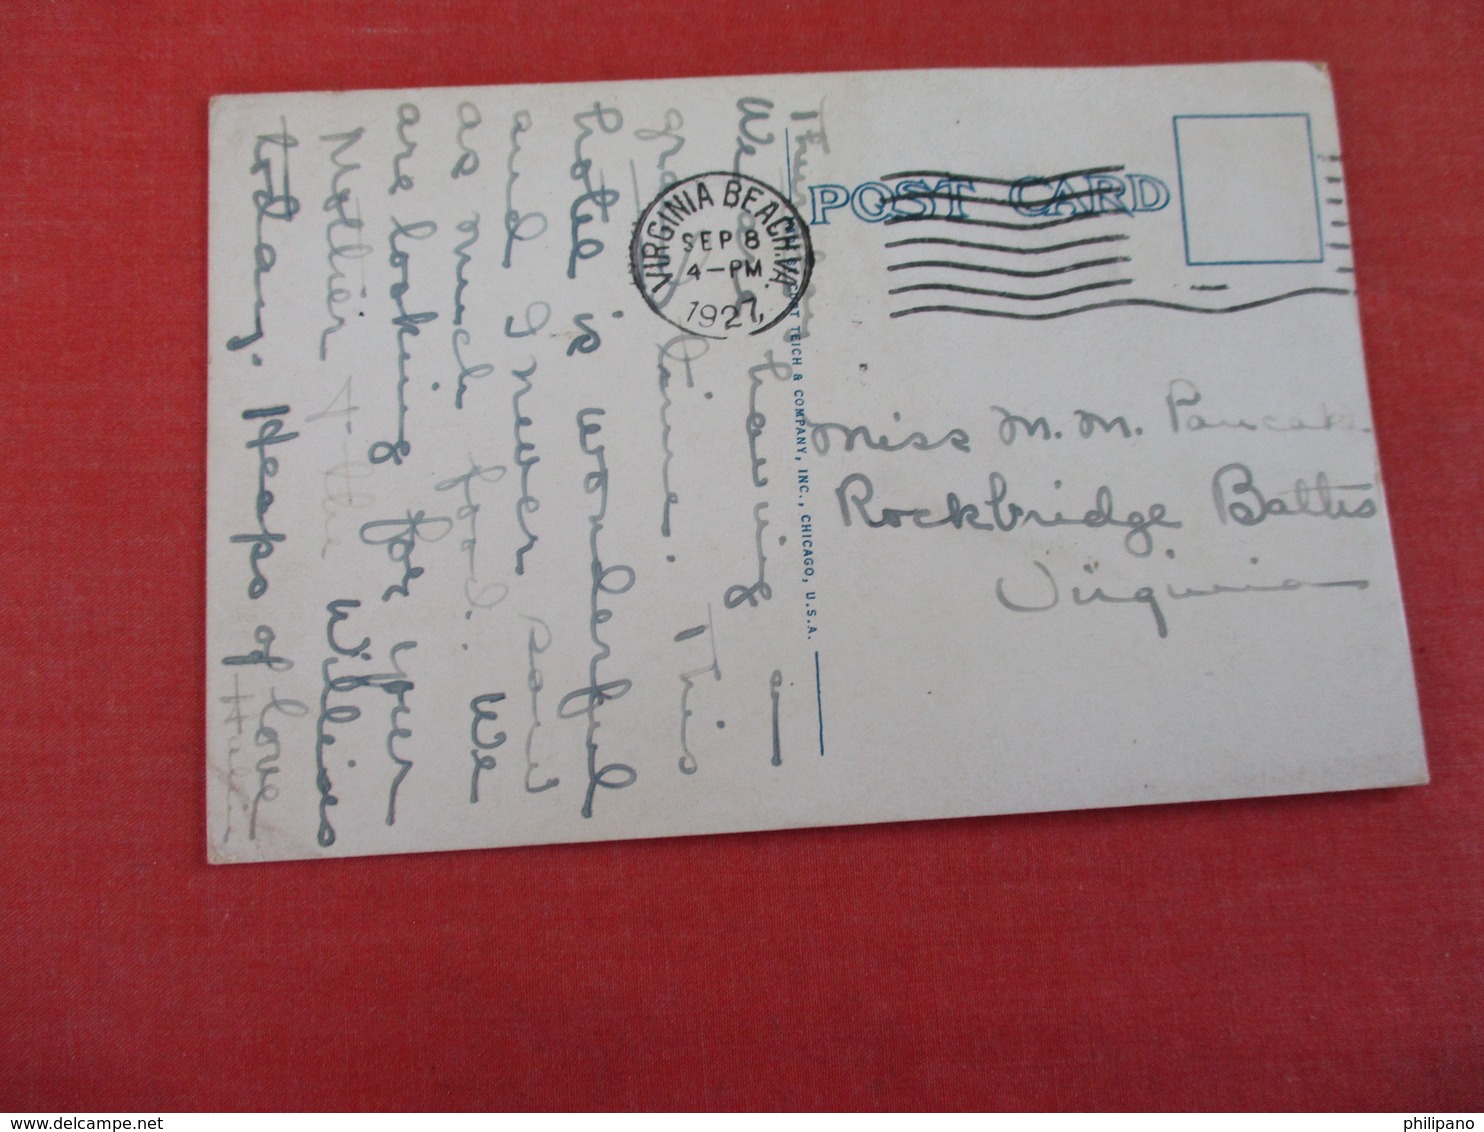 Thursday
We are having a
grand time. This
hotel is wonderful
and I never saw
as much food. We
are looking for your
Mother & the Willises
today. Heaps of love
POST CARD
VIRGINIA BEACH, VA.
SEP 8
4-PM
1927
TEICH & COMPANY, INC., CHICAGO, U.S.A.
Miss M. M.
Rockbridge Baths
Virginia
philipano